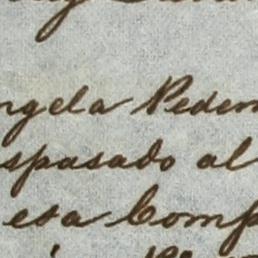 ngela Pedem
spasado al
esa Comp